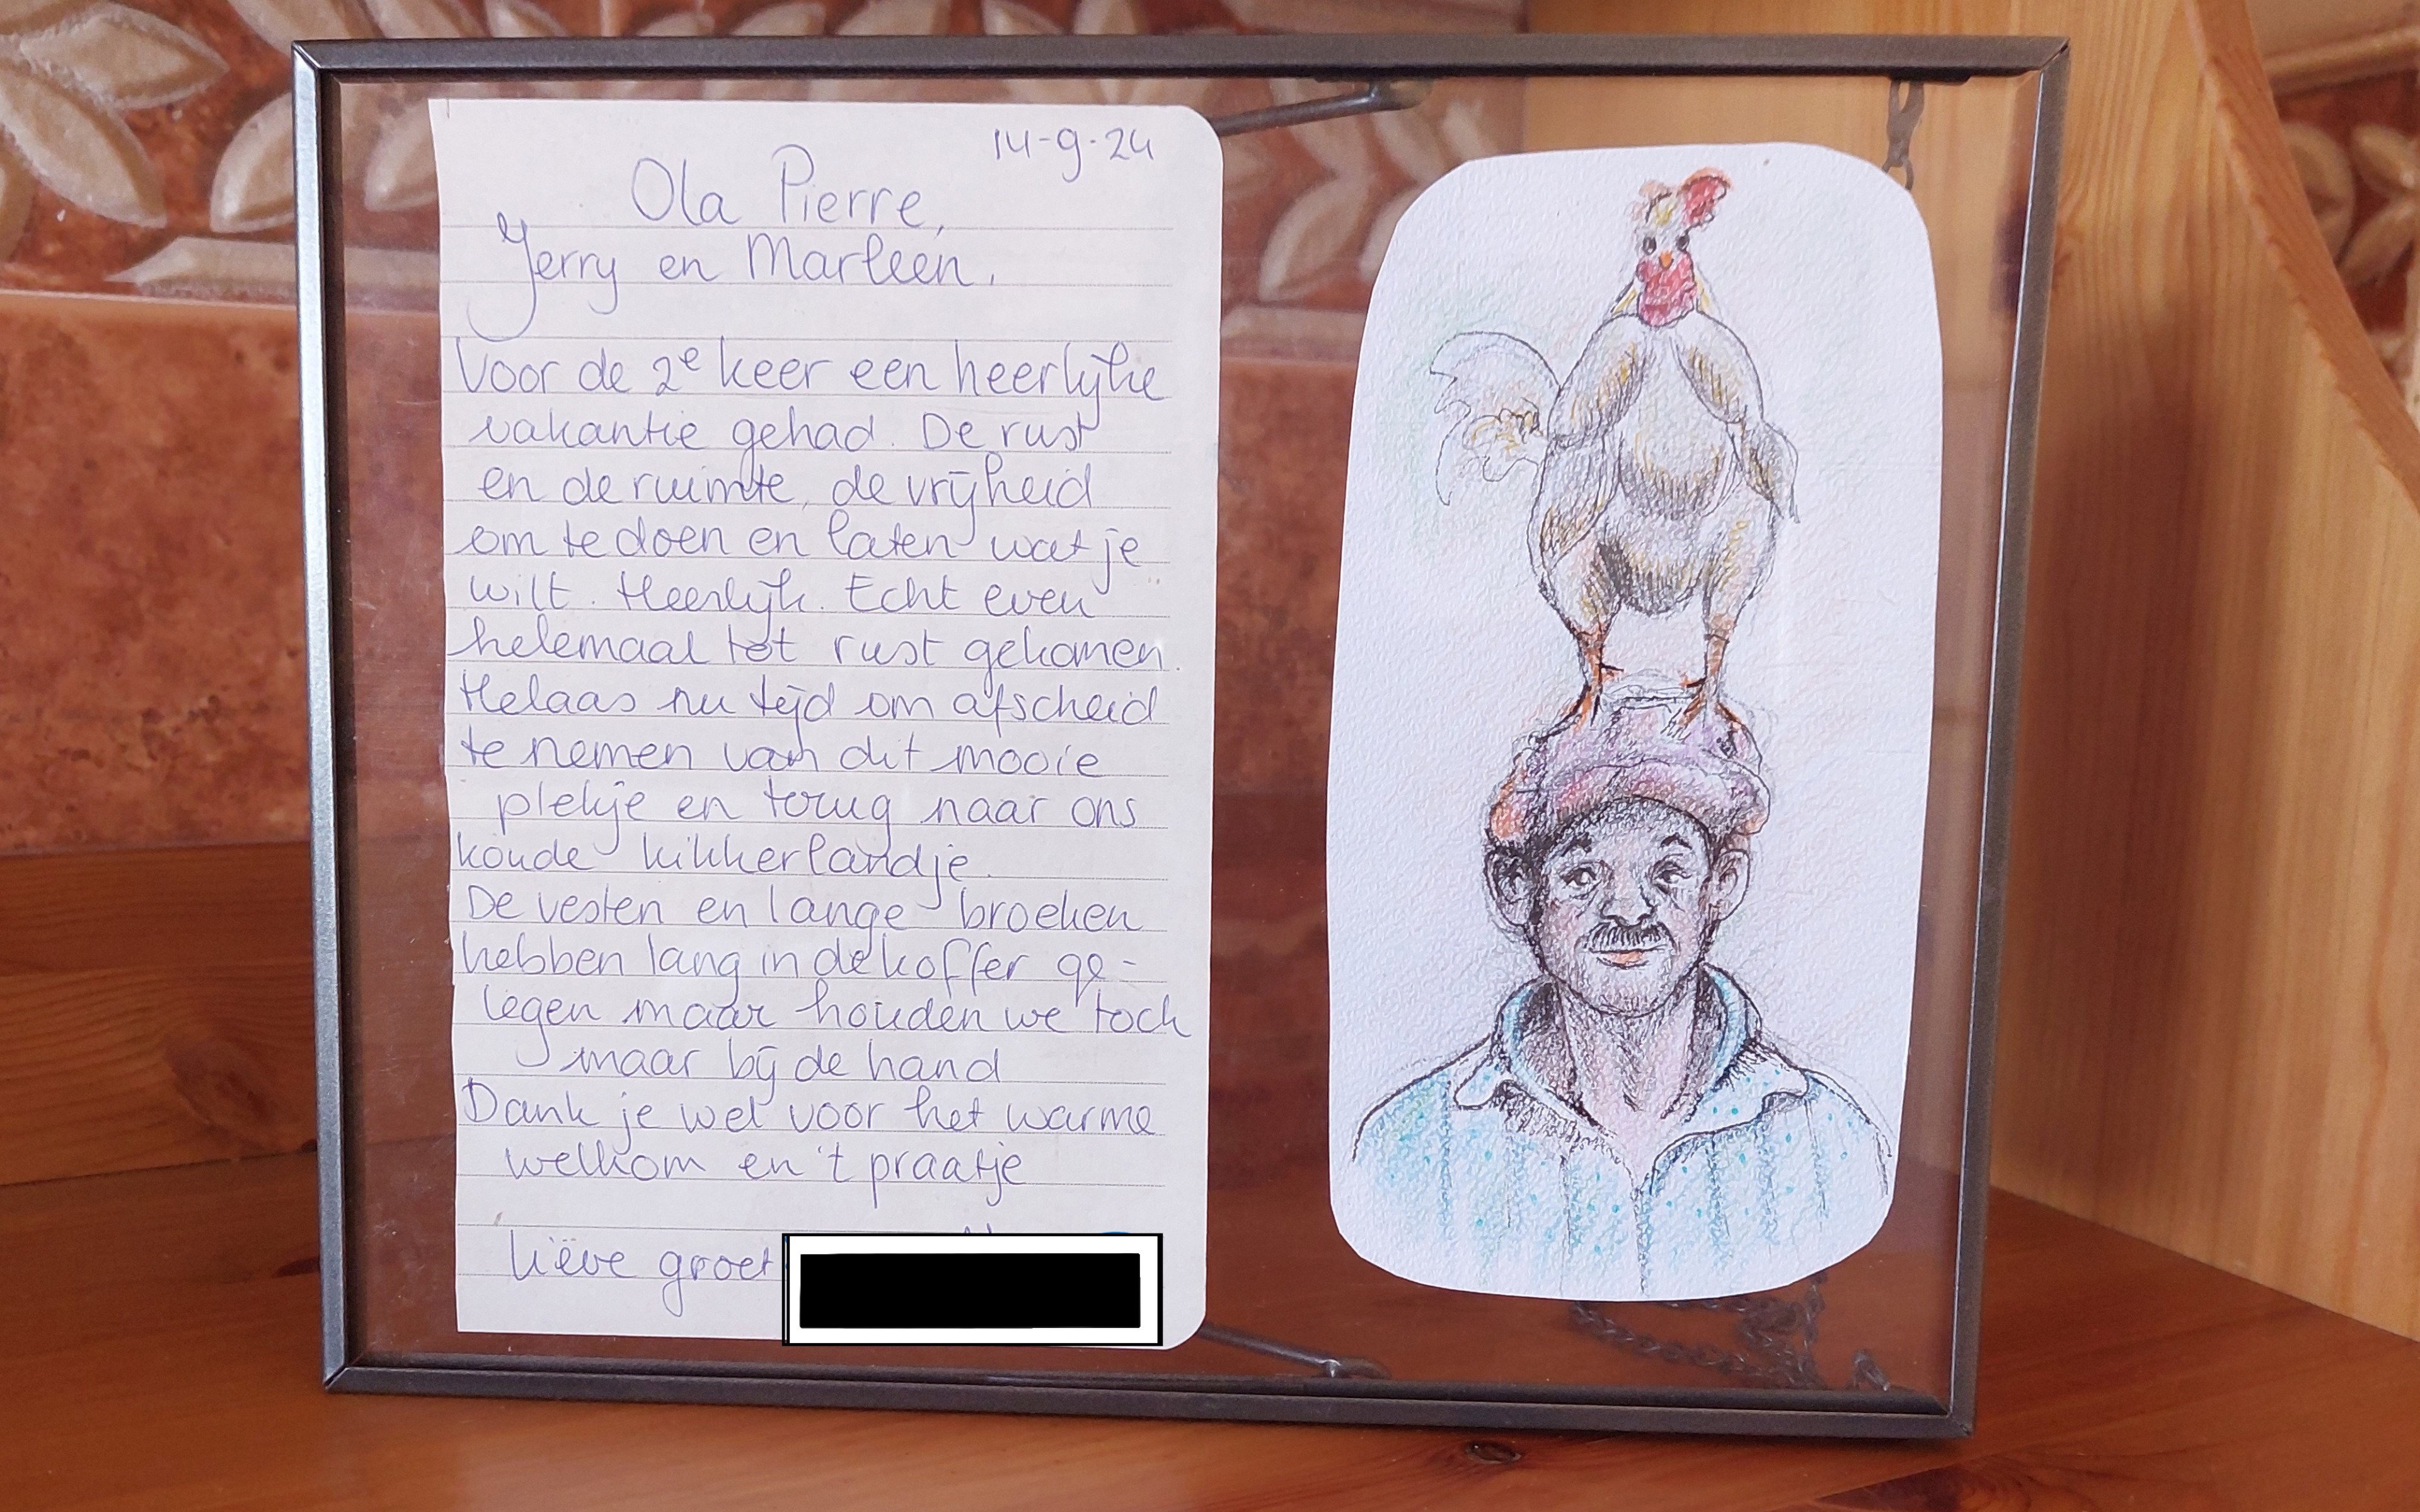 14-9-24
Ola Pierre,
Yerry en Marleen,
Voor de 2e keer een heerlijke
vakantie gehad. De rust
en de ruimte, de vrijheid
om te doen en laten wat je
wilt. Heerlijk. Echt even
helemaal tot rust gekomen.
Helaas nu tijd om afscheid
te nemen van dit mooie
plekje en terug naar ons
koude kikkerlandje.
De vesten en lange broeken
hebben lang in de koffer ge-
legen maar houden we toch
maar bij de hand
Dank je wel voor het warme
welkom en 't praatje
liëve groet